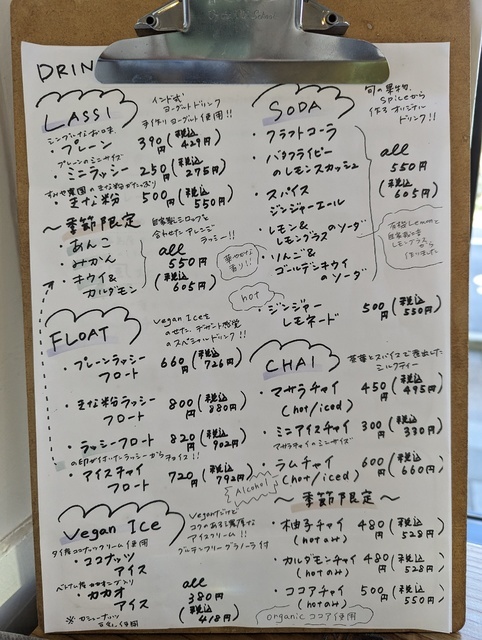 DRIN
LASSI
インド式
ヨーグルトドリンク
手作りヨーグルト使用!!
シンプルなお味
・プレーン 390円 (税込 429円)
プレーンのミニサイズ
・ミニラッシー 250円 (税込 275円)
きな粉がたっぷり
・きな粉 500円 (税込 550円)
〜季節限定
あんこ
みかん
キウイ&
カルダモン
自家製シロップと
合わせたアレンジ
ラッシー!!
all
550円
(税込 605円)
FLOAT
Vegan Iceを
のせた、デザート感覚
のスペシャルドリンク!!
・プレーンラッシー
フロート
660円 (税込 726円)
・きな粉ラッシー
フロート
800円 (税込 880円)
・ラッシーフロート 820円 (税込 902円)
の印が付いたラッシーからチョイス!!
・アイスチャイ
フロート
720円 (税込 792円)
Vegan Ice
Veganだけど
コクのある濃厚な
アイスクリーム!!
グルテンフリーグラノーラ付
タイ産ココナッツクリーム使用
・ココナッツ
アイス
ベトナム産カカオ
・カカオ
アイス
all
380円
(税込 418円)
※カシューナッツ
使用
SODA
旬の果物、
Spiceから
作るオリジナル
ドリンク!!
・クラフトコーラ
・バタフライピー
のレモンスカッシュ
・スパイス
ジンジャーエール
・レモン&
レモングラスのソーダ
・りんご&
ゴールデンキウイ
のソーダ
all
550円
(税込 605円)
華やかな
香り!!
有機Lemonと
自家製
レモングラス
から
作りました
hot
・ジンジャー
レモネード
500円 (税込 550円)
CHAI
茶葉とスパイスで煮出した
ミルクティー
・マサラチャイ
(hot/iced)
450円 (税込 495円)
・ミニアイスチャイ 300円 (税込 330円)
マサラチャイのミニサイズ
・ラムチャイ
(hot/iced)
600円 (税込 660円)
Alcohol
〜季節限定〜
・柚子チャイ
(hotのみ)
480円 (税込 528円)
・カルダモンチャイ
(hotのみ)
480円 (税込 528円)
・ココアチャイ
(hotのみ)
500円 (税込 550円)
organic ココア使用